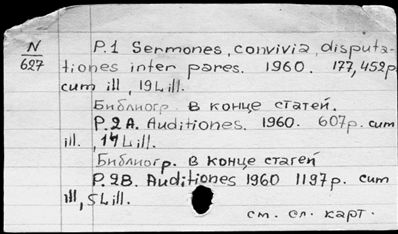 N P.1 Sermones, convivia, disputa-
627 tiones inter pares. 1960. 177,452p.
cum ill, 19 L ill.
Библиогр. в конце статей.
P.2A. Auditiones. 1960. 607p. cum
ill., 14 L ill.
Библиогр. в конце статей
P.2B. Auditiones 1960 1197p. cum
ill, 5 L ill.
см. сл. карт.